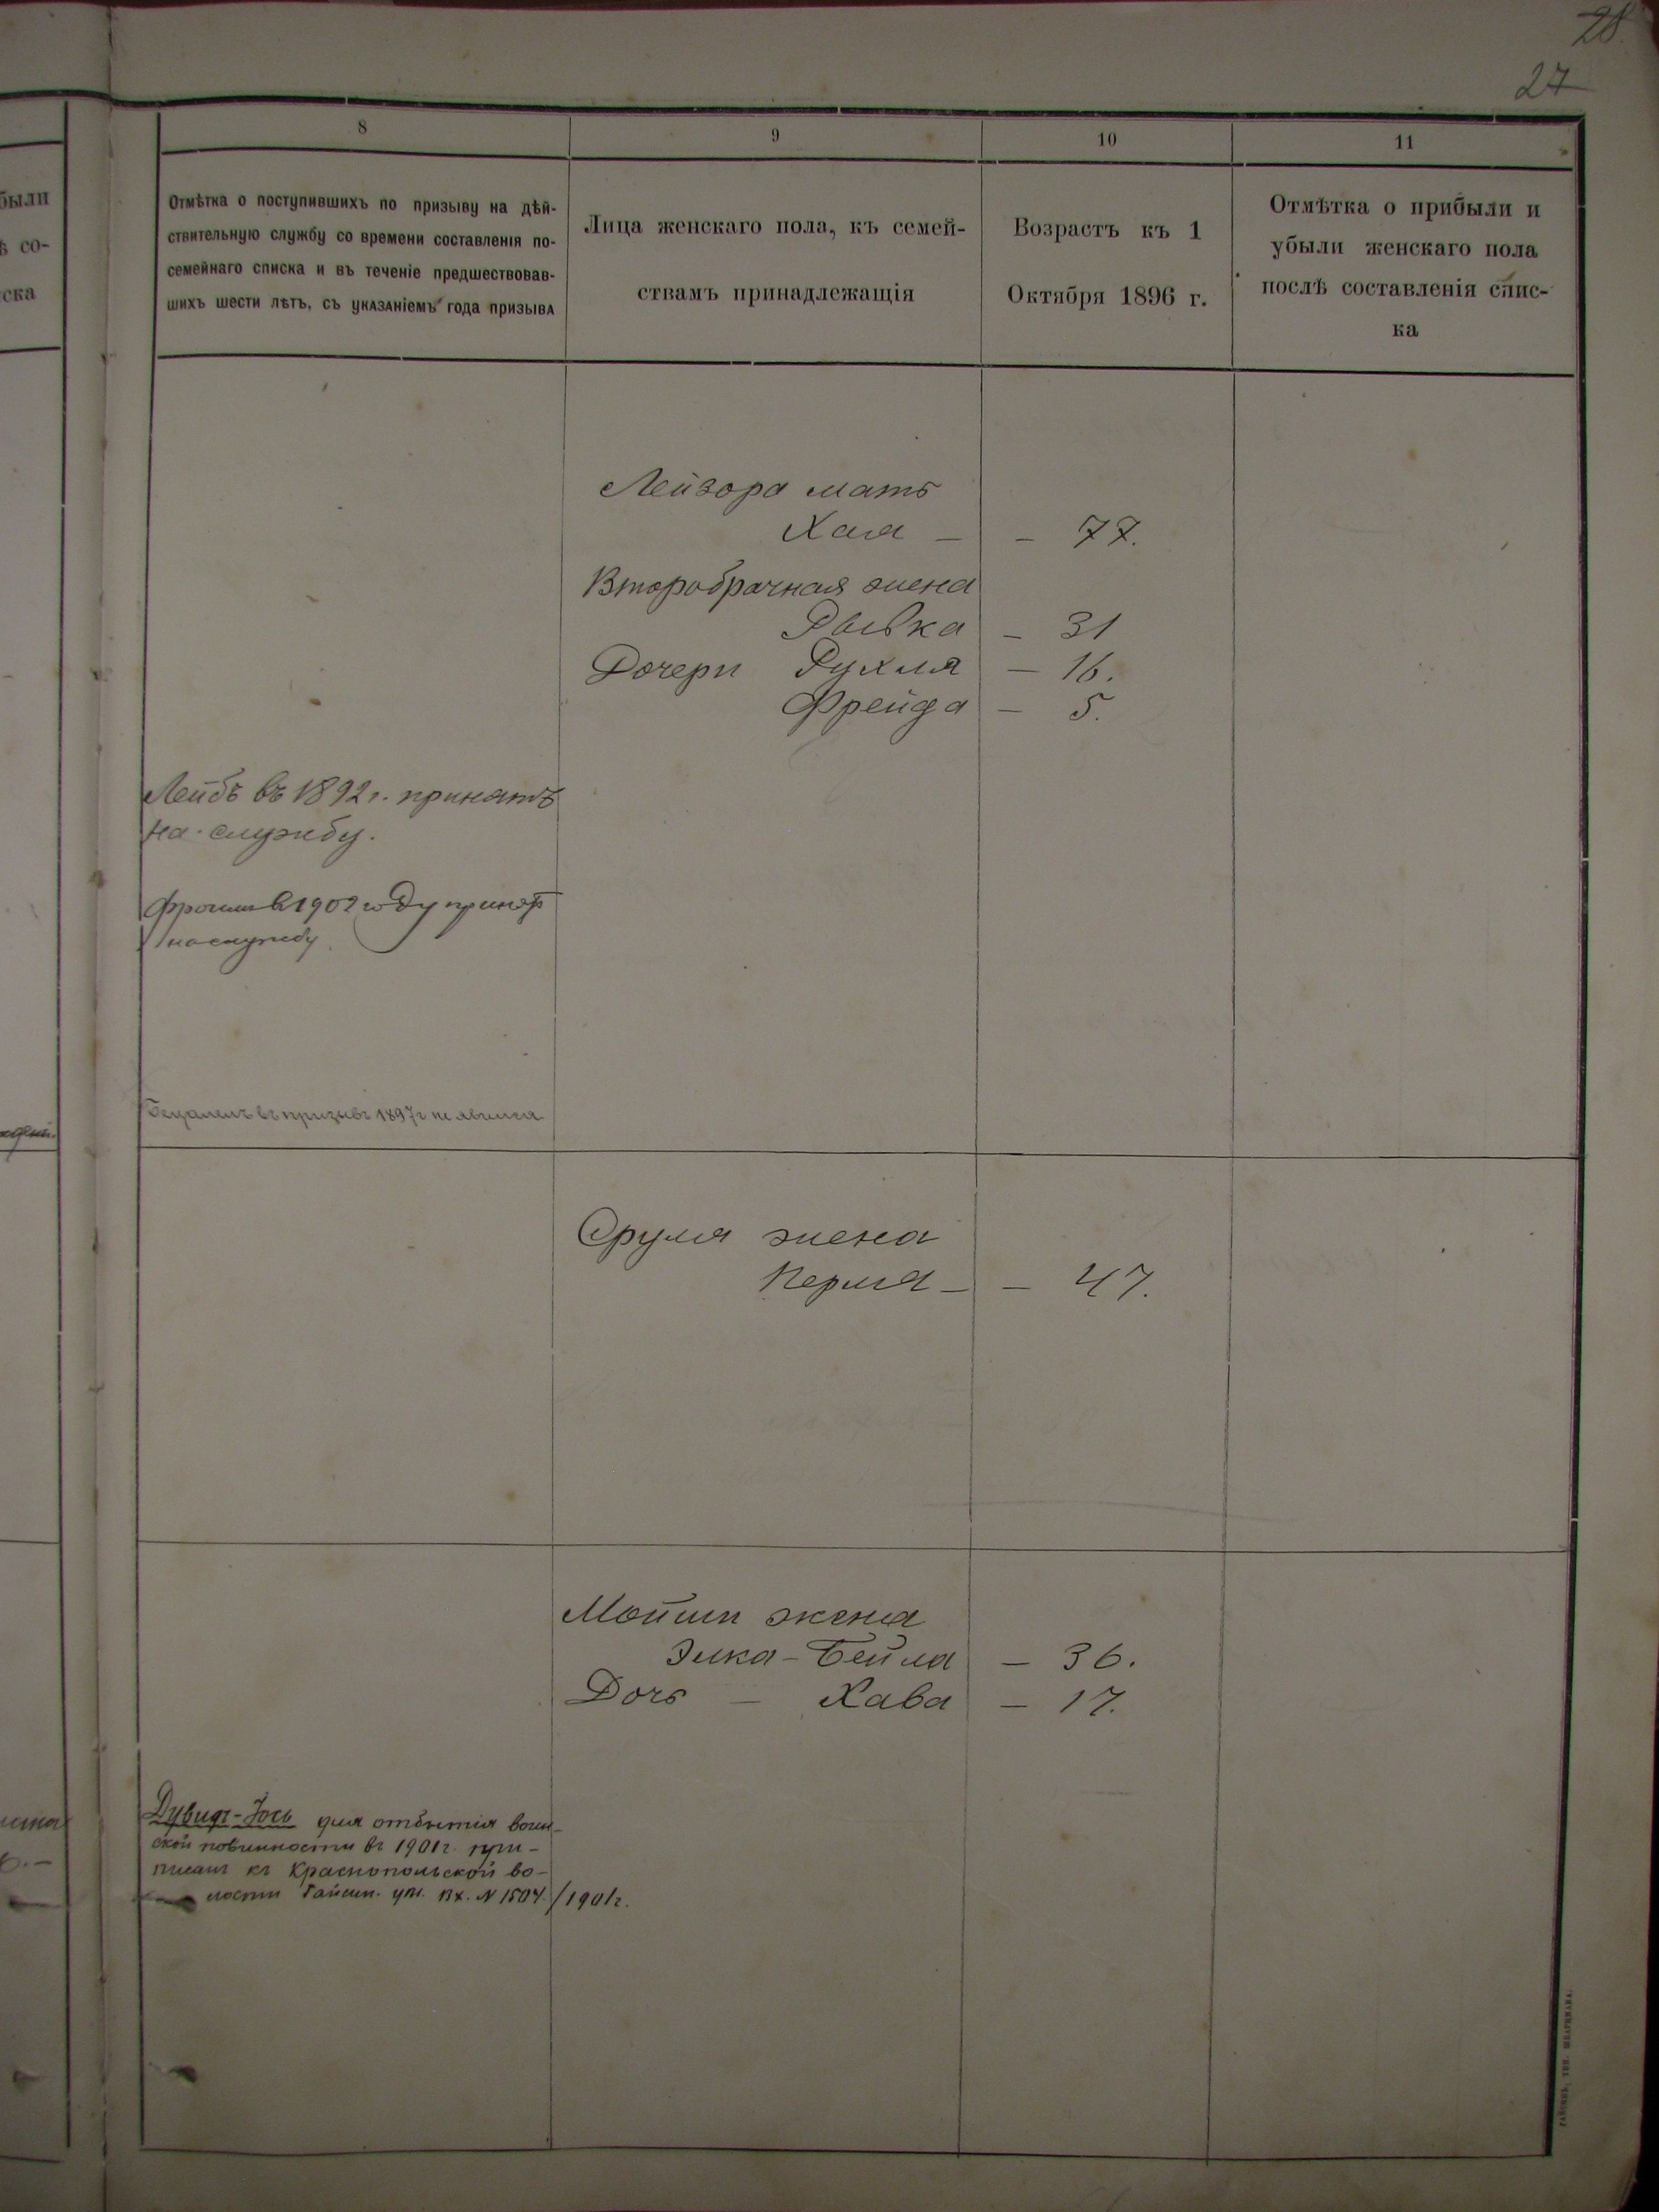 28
27
8
9
10
11
были
ѣ со-
ска
Отмѣтка о поступившихъ по призыву на дѣй-
ствительную службу со времени составленія по-
семейнаго списка и въ теченіе предшествовав-
шихъ шести лѣтъ, съ указаніемъ года призыва
Лица женскаго пола, къ семей-
ствамъ принадлежащія
Возрастъ къ 1
Октября 1896 г.
Отмѣтка о прибыли и
убыли женскаго пола
послѣ составленія спис-
ка
Лейзора мать
Хая — — 77.
Второбрачная жена
Рывка — 31
Дочери Рухля — 16.
Фрейда — 5.
Лейбъ въ 1892 г. принятъ
на службу.
Фроим в 1902 году принят
на службу
въ призывъ 1897 г
Сруля жена
Перля — — 47.
Мойши жена
Элка-Бейла — 36.
Дочь — Хава — 17.
Дувидъ-Іось для отбытія воин-
ской повинности въ 1901 г. при-
писанъ къ Краснопольской во-
лости Гайсин. у. вх. № 1504/1901 г.